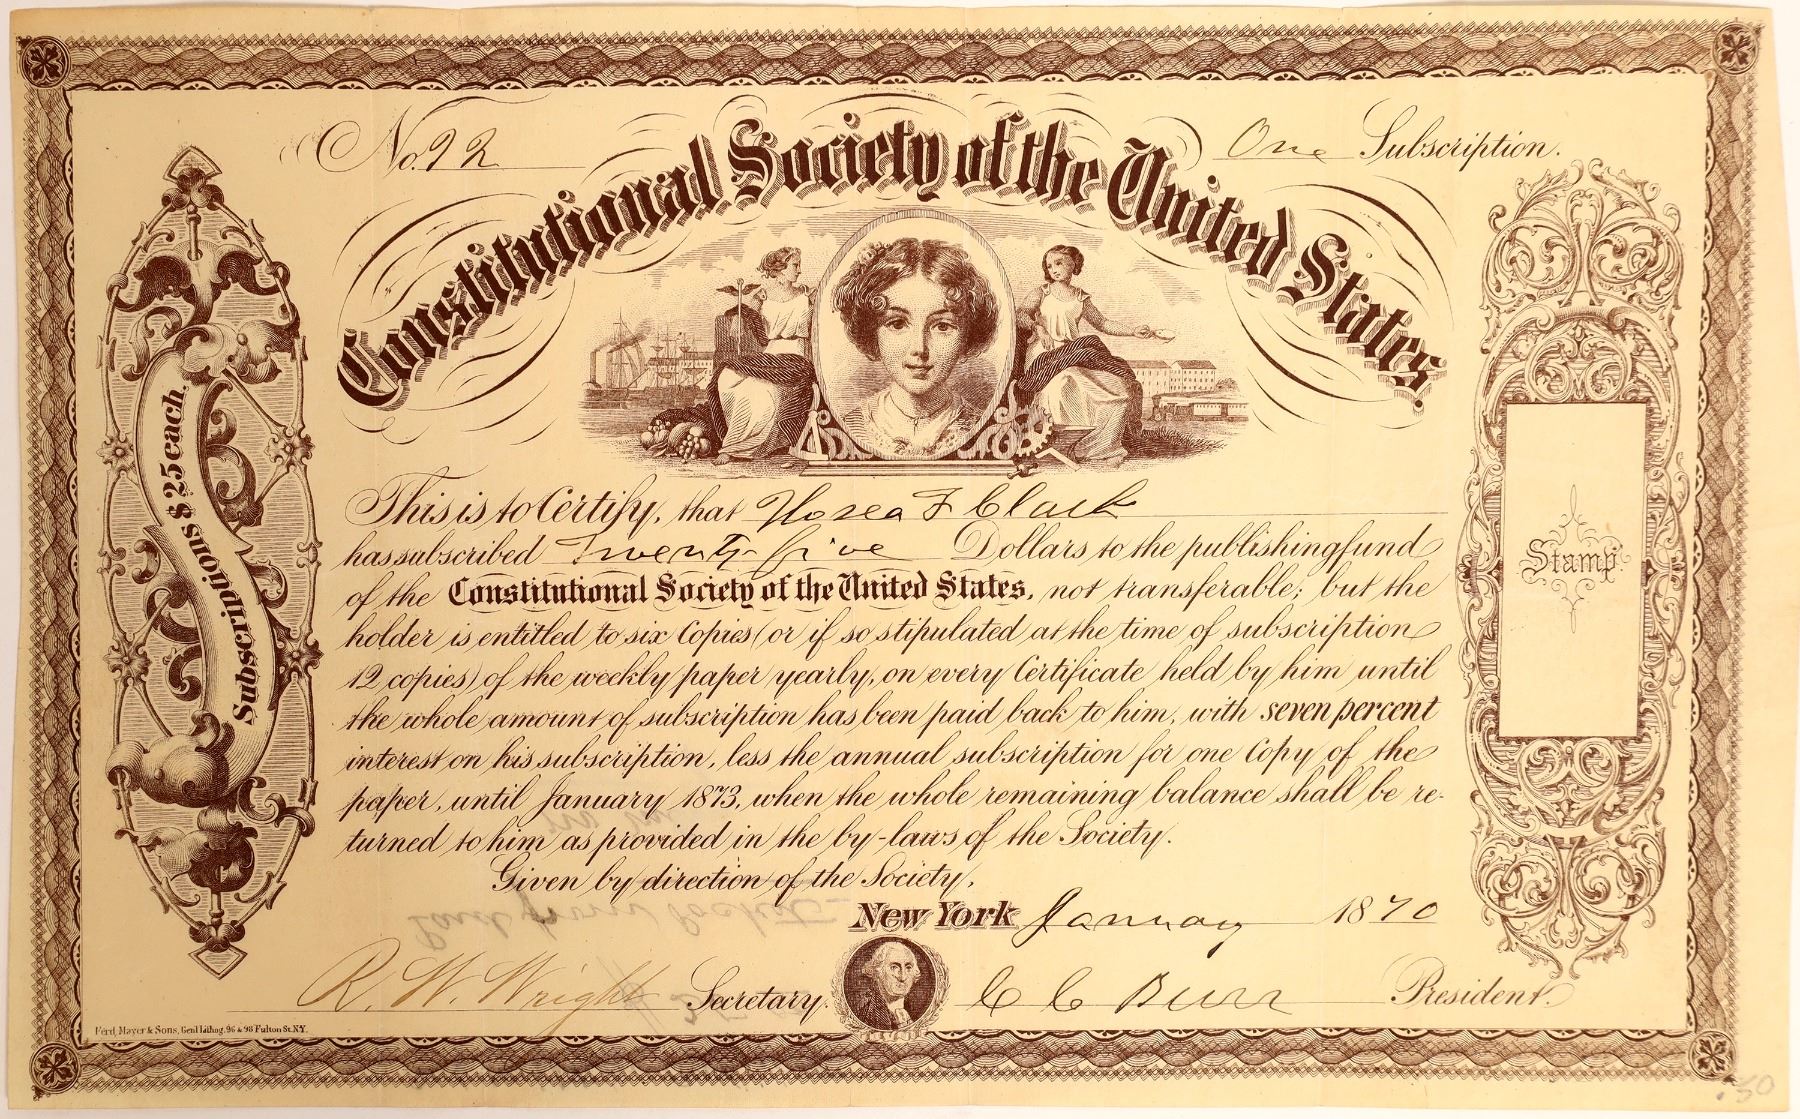 No. 22
One Subscription.
Constitutional Society of the United States
Subscriptions $25 each.
This is to Certify, that Hosea F Clark
has subscribed Twenty-five Dollars to the publishing fund
of the Constitutional Society of the United States, not transferable; but the
holder is entitled to six Copies (or if so stipulated at the time of subscription
12 copies) of the weekly paper yearly, on every Certificate held by him until
the whole amount of subscription has been paid back to him, with seven percent
interest on his subscription, less the annual subscription for one Copy of the
paper, until January 1873, when the whole remaining balance shall be re-
turned to him as provided in the by-laws of the Society.
Given by direction of the Society,
New York January 1870
R. W. Wright Secretary.
C C Burr President.
Stamp
Ferd. Mayer & Sons, Genl Lithog. 96 & 98 Fulton St. N.Y.